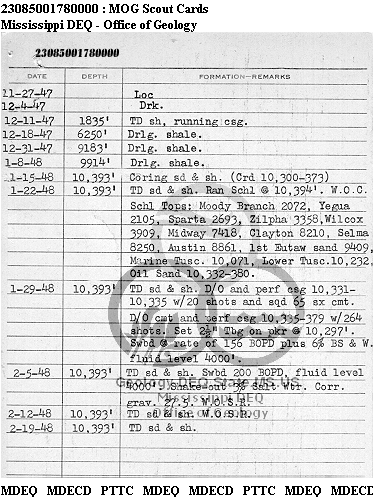 23085001780000 : MOG Scout Cards
Mississippi DEQ - Office of Geology
23085001780000
DATE DEPTH FORMATION—REMARKS
11-27-47 Loc
12-4-47 Drk.
12-11-47 1835' TD sh, running csg.
12-18-47 6250' Drlg. shale.
12-31-47 9183' Drlg. shale.
1-8-48 9914' Drlg. shale.
1-15-48 10,393' Coring sd & sh. (Crd 10,300-373)
1-22-48 10,393' TD sd & sh. Ran Schl @ 10,394'. W.O.C.
Schl Tops: Moody Branch 2072, Yegua
2105, Sparta 2693, Zilpha 3358,Wilcox
3909, Midway 7418, Clayton 8210, Selma
8250, Austin 8861, 1st Eutaw sand 9409,
Marine Tusc. 10,071, Lower Tusc.10,232,
Oil Sand 10,332-380.
1-29-48 10,393' TD sd & sh. D/O and perf csg 10,331-
10,335 w/20 shots and sqd 65 sx cmt.
D/O cmt and perf csg 10,335-379 w/264
shots. Set 2½" Tbg on pkr @ 10,297'.
Swbd @ rate of 156 BOPD plus 6% BS & W.
fluid level 4000'.
2-5-48 10,393' TD sd & sh. Swbd 200 BOPD, fluid level
4000'. Shake-out 3% Salt Wtr. Corr.
grav. 27.5. W.O.S.R.
2-12-48 10,393' TD sd & sh. W.O.S.R.
2-19-48 10,393' TD sd & sh.
Geology.DEQ.State.MS.US
Mississippi DEQ
Office of Geology
MDEQ MDECD PTTC MDEQ MDECD PTTC MDEQ MDECD